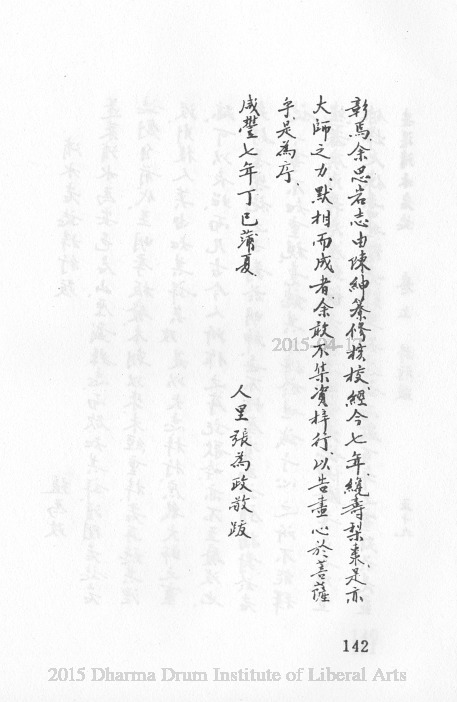 彰焉余思岩志由陳紳纂修核校經今七年纔壽梨棗是亦
大師之力默相而成者余敢不集資梓行以告盡心於菩薩
乎是為序
咸豐七年丁巳蒲夏
人里張為政敬跋
142
2015-04-1
2015 Dharma Drum Institute of Liberal Arts